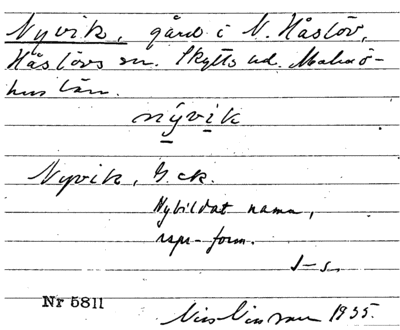 Nyvik, gård i N. Håslöv,
Håslövs sn. Skytts hd. Malmö-
hus län.
nývik
Nyvik, G. ek.
Nybildat namn,
rspr-form.
J-s.
Nr 5811
1935.